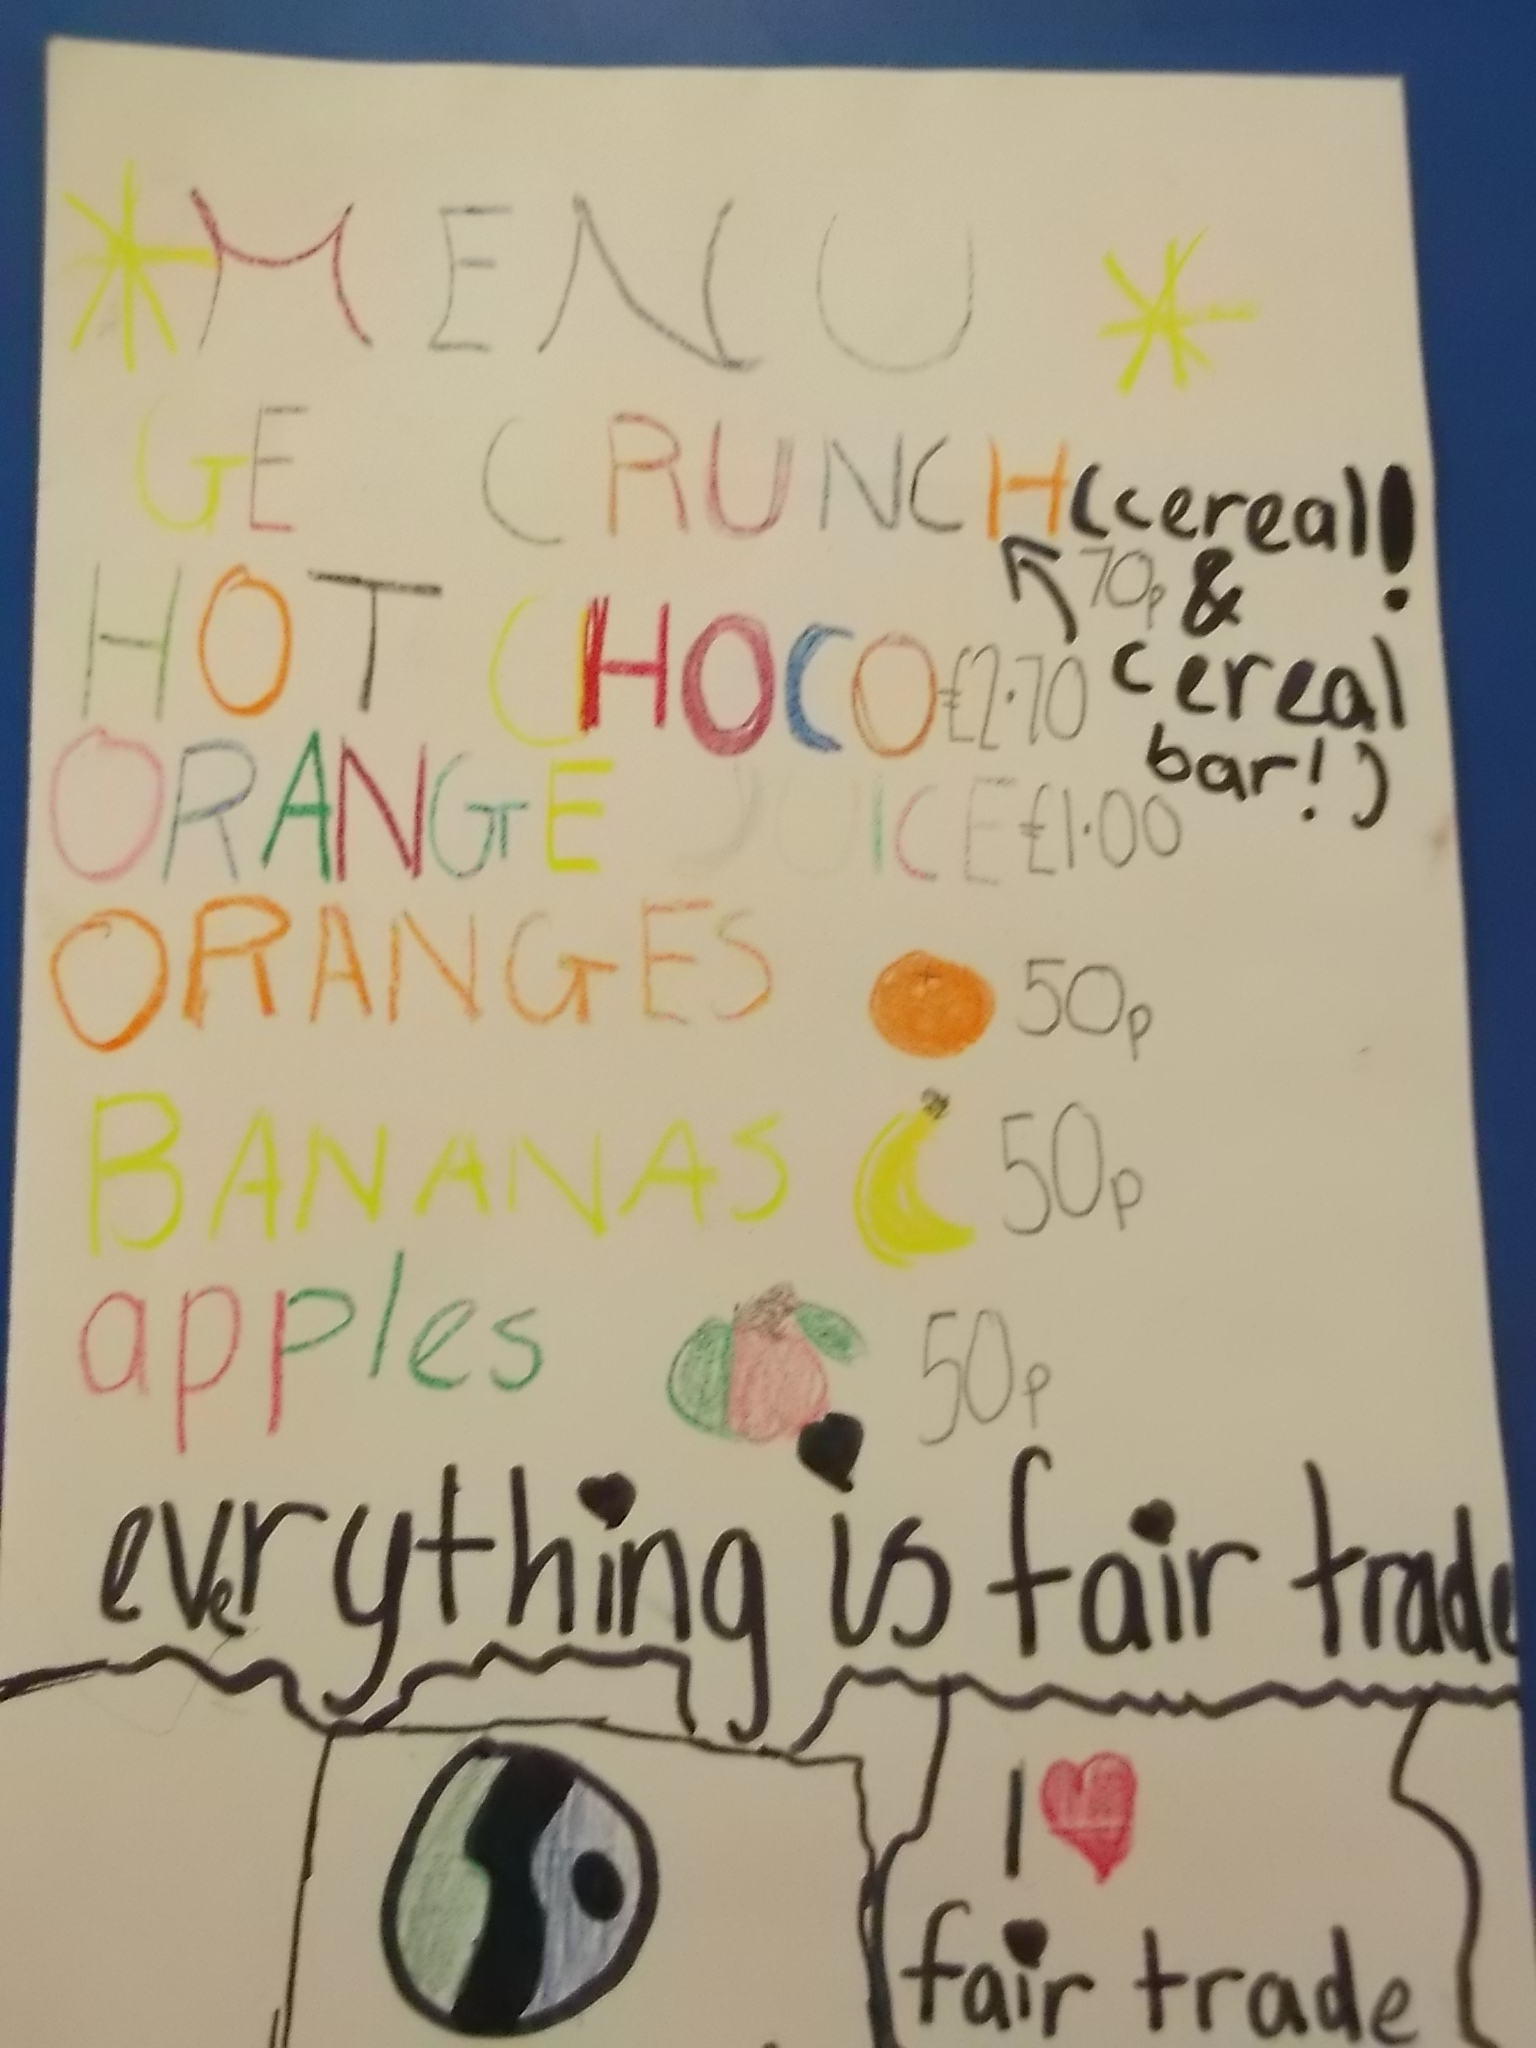 MENU
GE CRUNCH (cereal!
70p &
cereal
bar!)
HOT CHOCO £2.70
ORANGE JUICE £1.00
ORANGES 50p
BANANAS 50p
apples 50p
everything is fair trade
I
fair trade